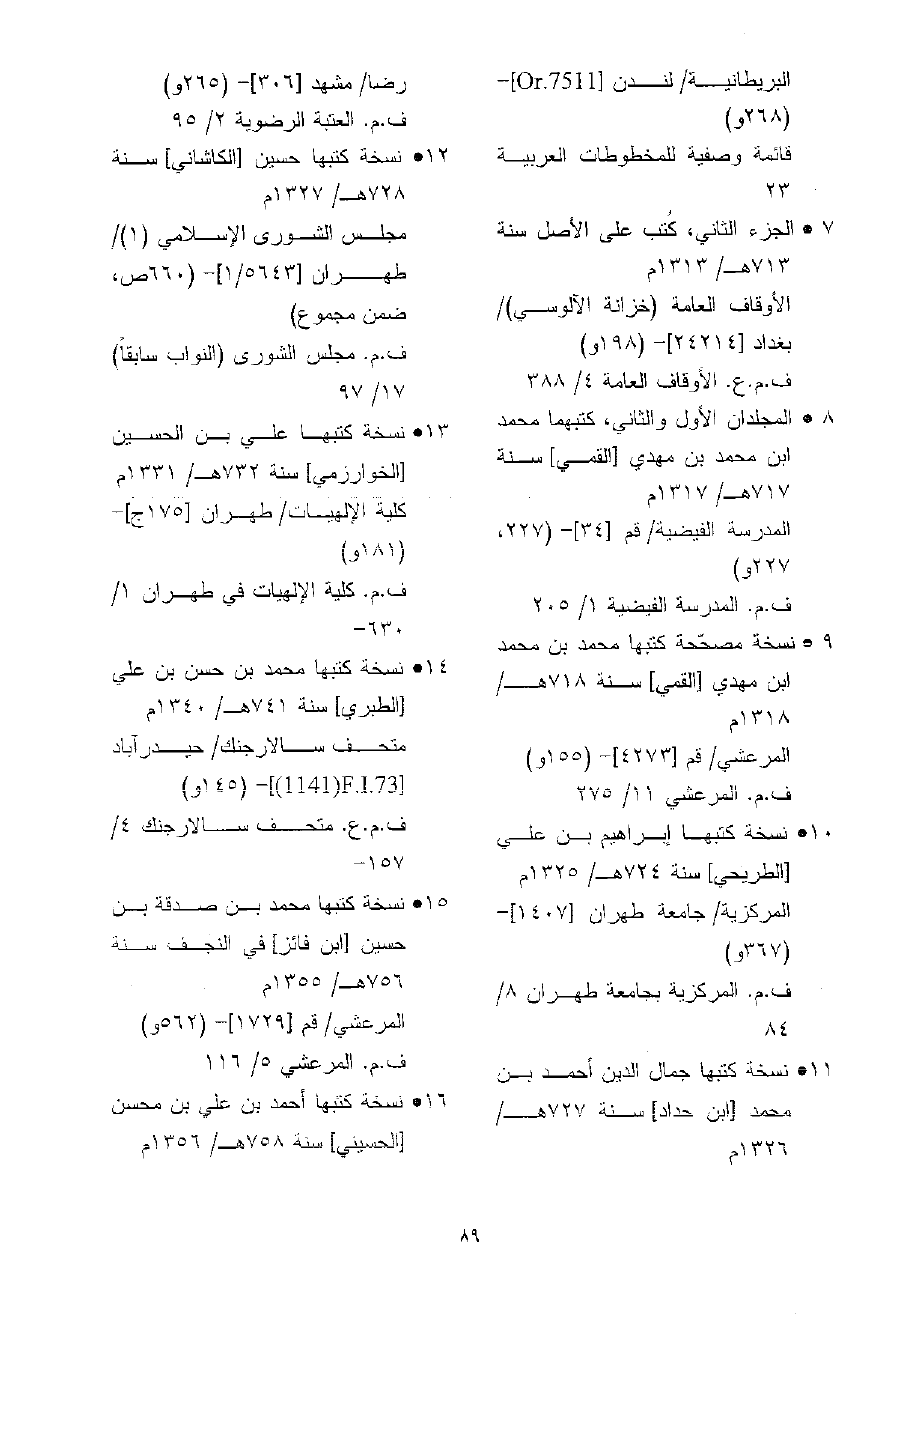 البريطانيـــة/ لنـــدن [Or.7511]–
(٢٦٨و)
قائمة وصفية للمخطوطات العربيـــة
٢٣
٧ • الجزء الثاني، كُتب على الأصل سنة
٧١٣هــ/ ١٣١٣م
الأوقاف العامة (خزانة الآلوســـي)/
بغداد [٢٤٢١٤]– (١٩٨و)
ف.م.ع. الأوقاف العامة ٤/ ٣٨٨
٨ • المجلدان الأول والثاني، كتبهما محمد
ابن محمد بن مهدي [القمـــي] ســـنة
٧١٧هــ/ ١٣١٧م
المدرسة الفيضية/ قم [٣٤]– (٢٢٧،
٢٢٧و)
ف.م. المدرسة الفيضية ١/ ٢٠٥
٩ • نسخة مصحّحة كتبها محمد بن محمد
ابن مهدي [القمي] ســـنة ٧١٨هـــ/
١٣١٨م
المرعشي/ قم [٤٢٧٣]– (١٥٥و)
ف.م. المرعشي ١١/ ٢٧٥
١٠• نسخة كتبهـــا إبـــراهيم بـــن علـــي
[الطريحي] سنة ٧٢٤هــ/ ١٣٢٥م
المركزية/ جامعة طهران [١٤٠٧]–
(٣٦٧و)
ف.م. المركزية بجامعة طهـران ٨/
٨٤
١١• نسخة كتبها جمال الدين أحمـــد بـــن
محمد [ابن حداد] ســـنة ٧٢٧هـــ/
١٣٢٦م
رضا/ مشهد [٣٠٦]– (٢٦٥و)
ف.م. العتبة الرضوية ٢/ ٩٥
١٢• نسخة كتبها حسين [الكاشاني] ســـنة
٧٢٨هــ/ ١٣٢٧م
مجلـــس الشـــورى الإســـلامي (١)/
طهـــران [١/٥٦٤٣]– (٦٦٠ص،
ضمن مجموع)
ف.م. مجلس الشورى (النواب سابقاً)
١٧/ ٩٧
١٣• نسخة كتبهـــا علـــي بـــن الحســـين
[الخوارزمي] سنة ٧٣٢هــ/ ١٣٣١م
كلية الإلهيـــات/ طهـــران [١٧٥ج]–
(١٨١و)
ف.م. كلية الإلهيات في طهـــران ١/
٦٣٠–
١٤• نسخة كتبها محمد بن حسن بن علي
[الطبري] سنة ٧٤١هــ/ ١٣٤٠م
متحـــف ســـالارجنك/ حيـــدرآباد
[F.I.73(1141)]– (١٤٥و)
ف.م.ع. متحـــف ســـالارجنك ٤/
١٥٧–
١٥• نسخة كتبها محمد بـــن صـــدقة بـــن
حسين [ابن فائز] في النجـــف ســـنة
٧٥٦هــ/ ١٣٥٥م
المرعشي/ قم [١٧٢٩]– (٥٦٢و)
ف.م. المرعشي ٥/ ١١٦
١٦• نسخة كتبها أحمد بن علي بن محسن
[الحسيني] سنة ٧٥٨هــ/ ١٣٥٦م
٨٩